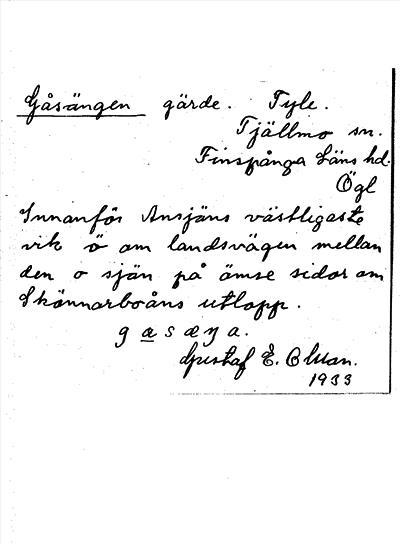 Gåsängen gärde. Tyle.
Tjällmo sn.
Finspånga läns hd.
Ögl
Innanför Ansjäns västligaste
vik ö om landsvägen mellan
den o sjön på ömse sidor om
Skönnarboåns utlopp.
gɑsæŋa.
Gustaf E. Olsson.
1933